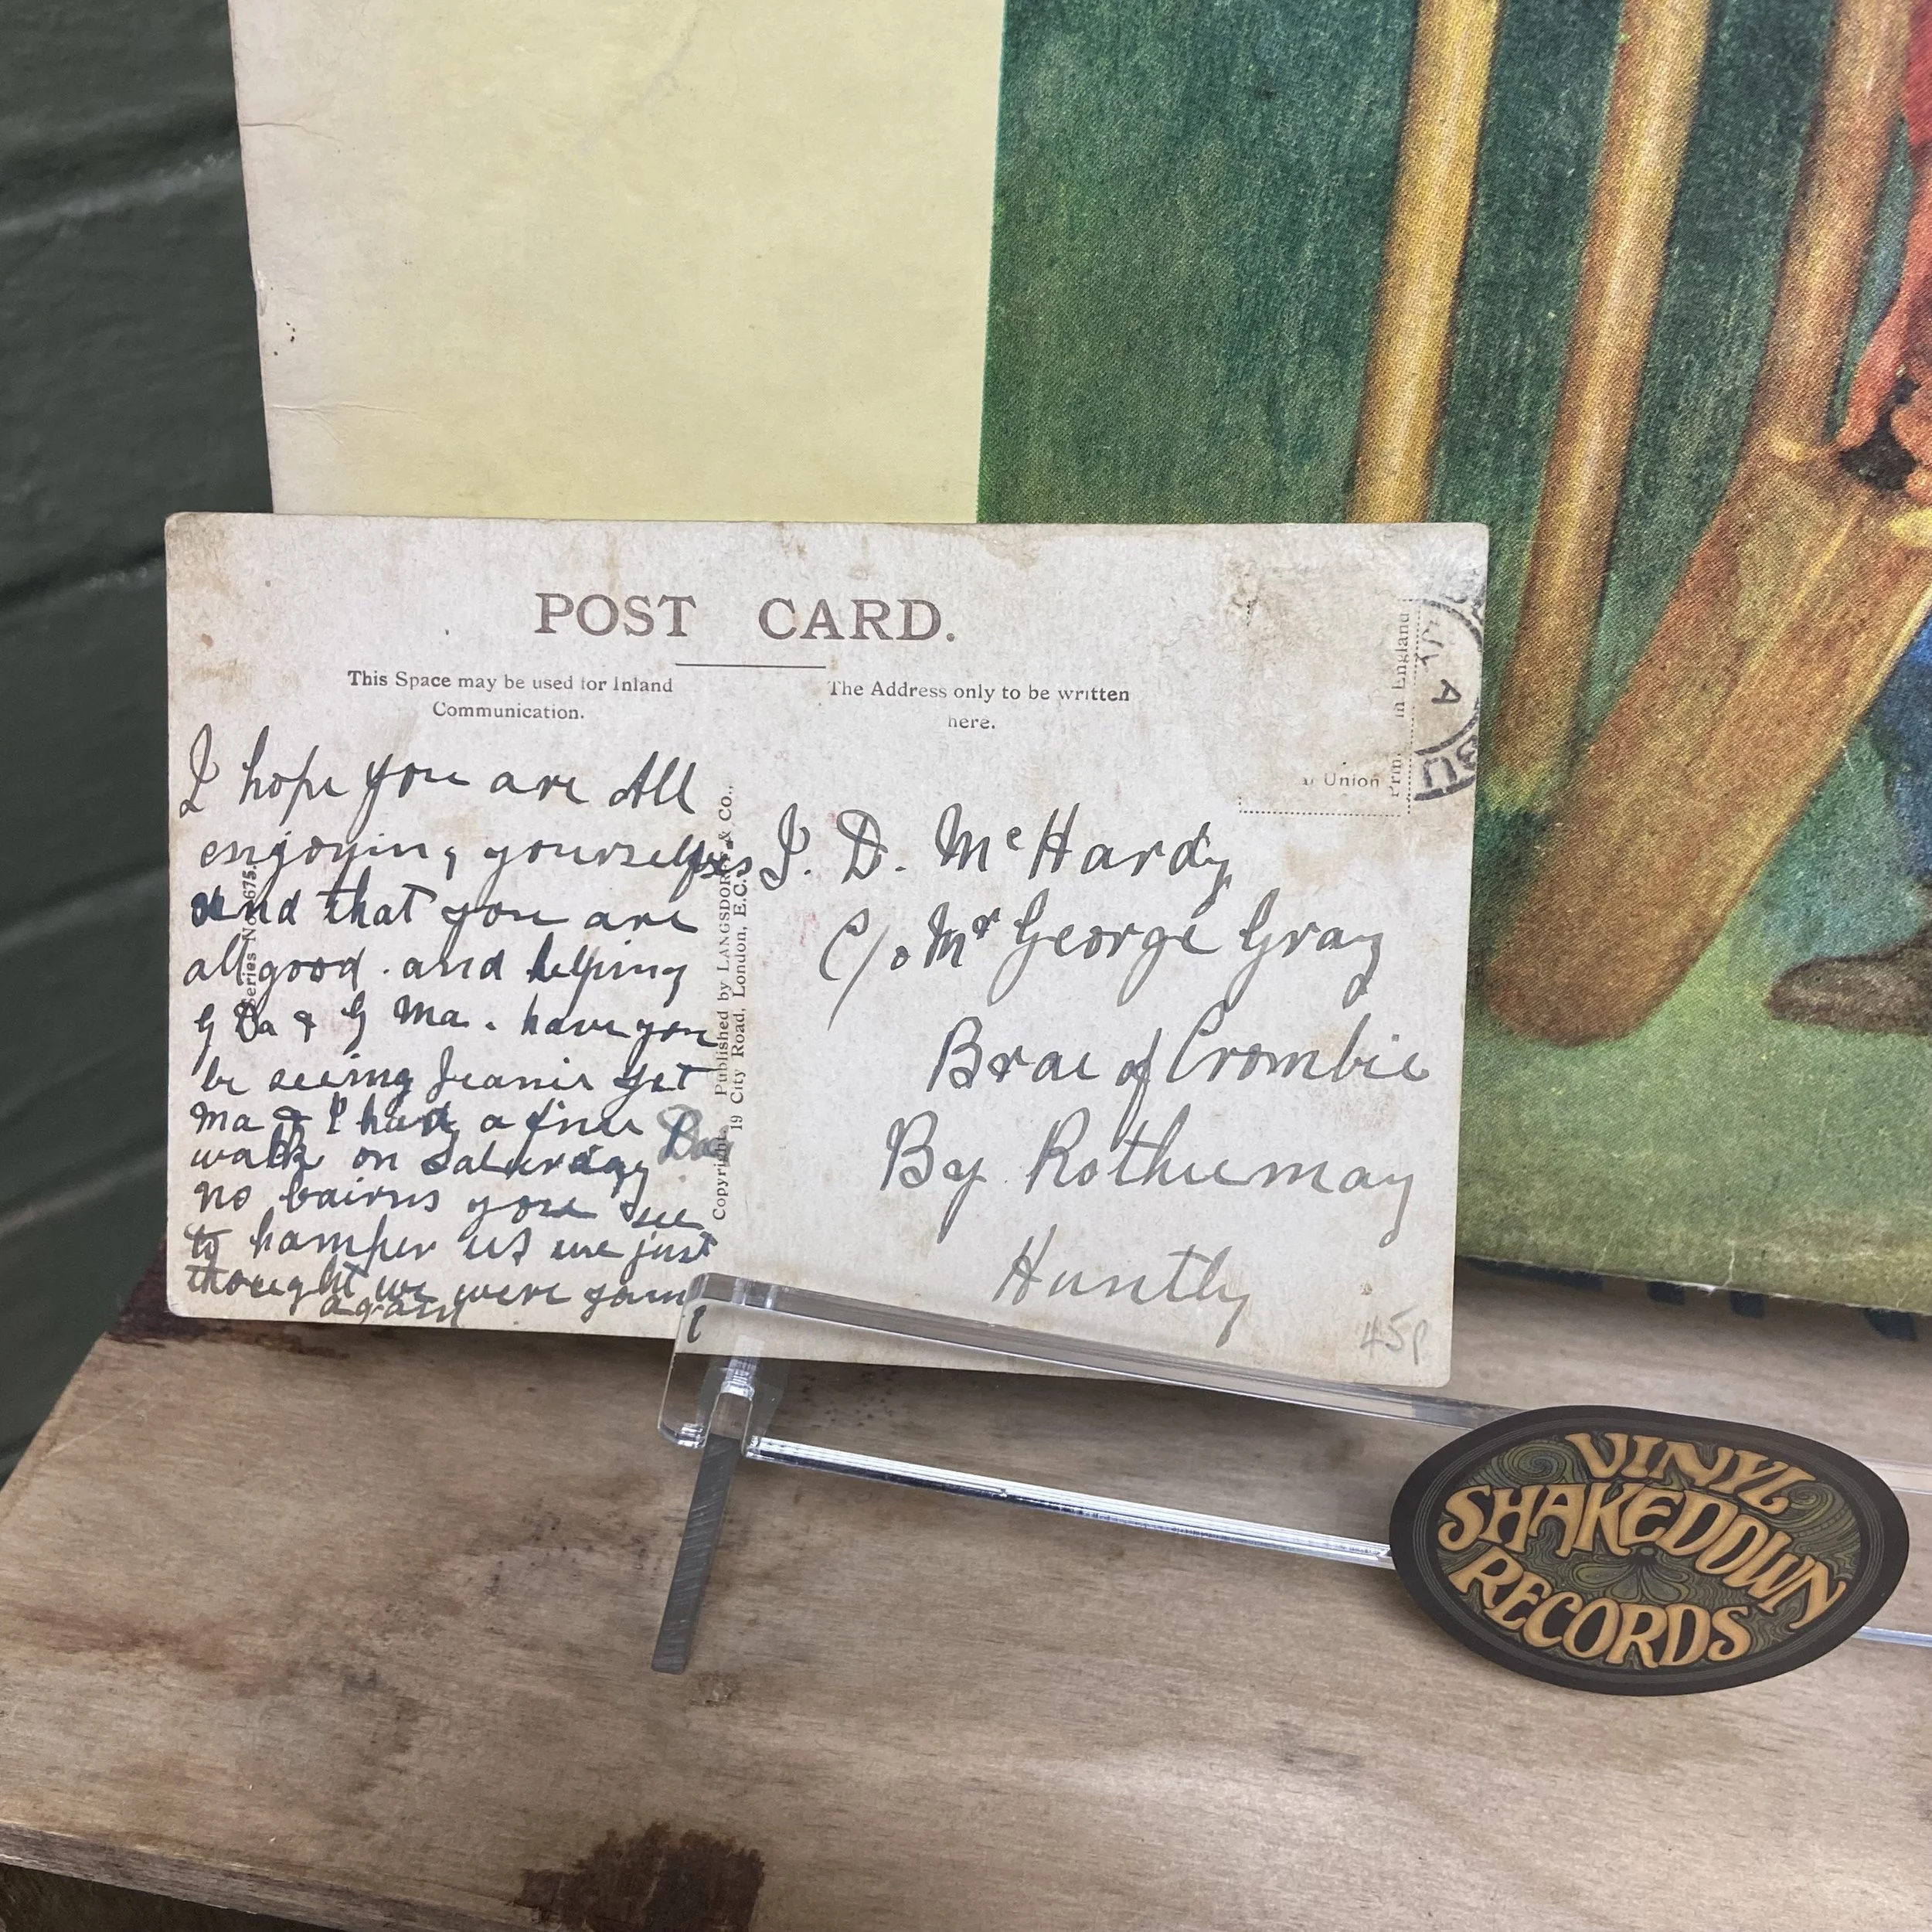 POST CARD.
This Space may be used for Inland
Communication.
The Address only to be written
here.
I hope you are All
engoying yourselfes
and that you are
all good. and helping
G Da & G Ma. have you
be seeing Jeanie yet
Ma & I had a fine
walk on Saturday
no bairns you see
to hamper us we just
thought we were young
again
Da
Series No. 675.
Copyright. Published by LANGSDORFF & Co.,
19 City Road, London, E.C.
J. D. McHardy
C/o Mr George Gray
Brae of Crombie
By Rothiemay
Huntly
in England
Union
45p
VINYL
SHAKEDOWN
RECORDS